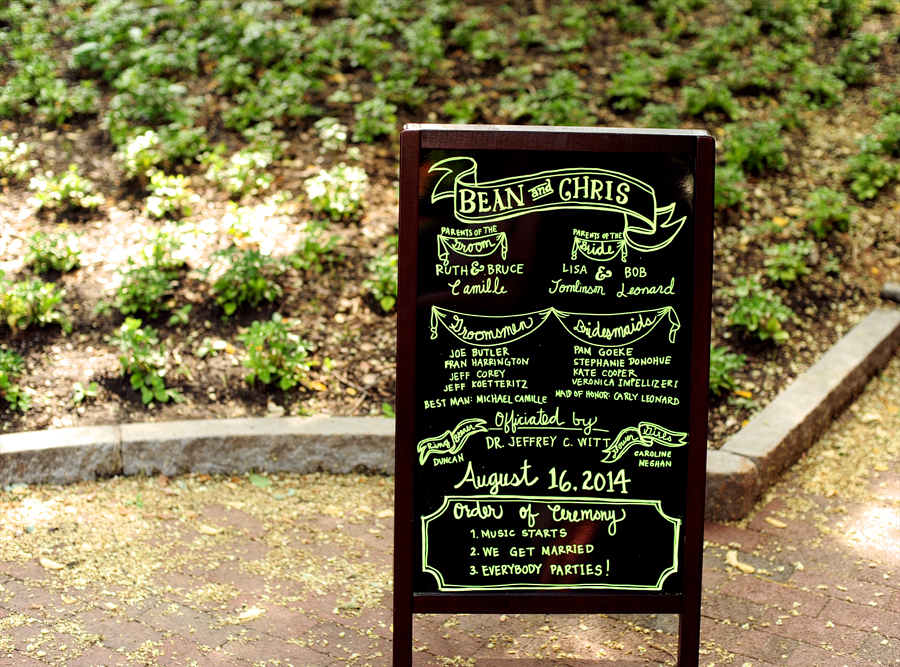 BEAN and CHRIS
PARENTS OF THE
Groom
RUTH & BRUCE
Camille
PARENTS OF THE
Bride
LISA & BOB
Tomlinson Leonard
Groomsmen
JOE BUTLER
FRAN HARRINGTON
JEFF COREY
JEFF KOETTERITZ
BEST MAN: MICHAEL CAMILLE
Bridesmaids
PAM GOEKE
STEPHANIE DONOHUE
KATE COOPER
VERONICA IMPELLIZERI
MAID OF HONOR: CARLY LEONARD
Officiated by
DR. JEFFREY C. WITT
Ring Bearer
DUNCAN
Flower Girls
CAROLINE
MEGHAN
August 16, 2014
Order of Ceremony
1. MUSIC STARTS
2. WE GET MARRIED
3. EVERYBODY PARTIES!